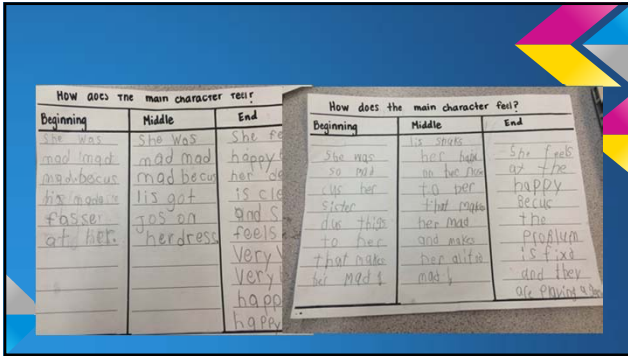 How does the main character feel?
Beginning
She was
mad mad
mad becus
her
at her.
Middle
She was
mad mad
mad becus
lis got
jos on
her dress
End
She fe
happy
her de
is cle
and s
feels
Very
Very
happ
happy
How does the main character feel?
Beginning
She was
so mad
cus her
Sister
dus thigs
to her
that makes
her mad
Middle
lis
her
to her
that makes
her mad
and makes
her
mad
End
She feels
at the
happy
Becus
the
Problum
is fixd
and they
are Playing a